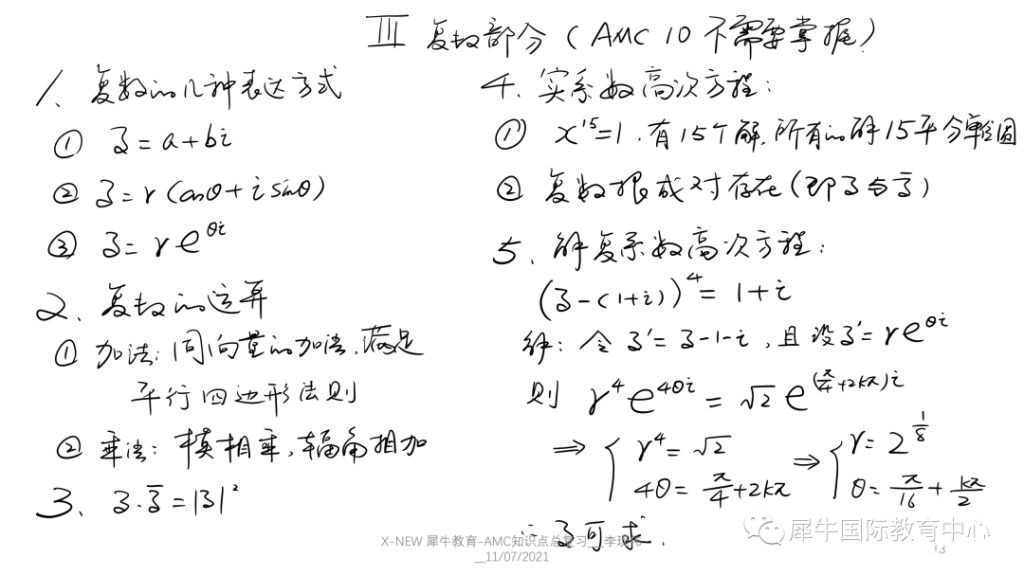 III 复数部分（AMC 10 不需要掌握）
1、复数的几种表达方式
① z = a + bi
② z = r (cosθ + i sinθ)
③ z = r e^{θi}
2、复数的运算
① 加法：同向量的加法，满足
平行四边形法则
② 乘法：模相乘，辐角相加
3、z·z̄ = |z|²
4、实系数高次方程：
① x¹⁵ = 1，有15个解，所有的解15平分单位圆
② 复数根成对存在（即z与z̄）
5、解复系数高次方程：
(z-(1+i))⁴ = 1+i
解：令 z' = z-1-i，且设 z' = r e^{θi}
则 r⁴ e^{4θi} = √2 e^{(π/4+2kπ)i}
⇒ { r⁴ = √2 ⇒ { r = 2^{1/8}
4θ = π/4 + 2kπ θ = π/16 + kπ/2
∴ z 可求.
X-NEW 犀牛教育-AMC知识点总复习__李
__11/07/2021
犀牛国际教育中心
13